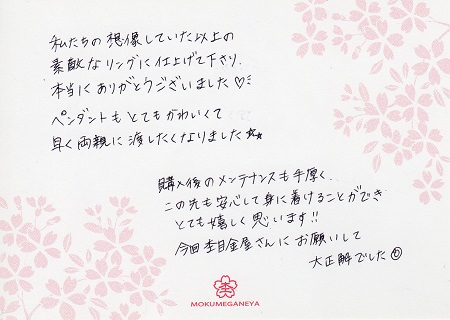 私たちの想像していた以上の
素敵なリングに仕上げて下さり、
本当にありがとうございました♡
ペンダントもとてもかわいくて
早く両親に渡したくなりました☆★
購入後のメンテナンスも手厚く、
この先も安心して身に着けることができ
とても嬉しく思います!!
今回杢目金屋さんにお願いして
大正解でした☺
杢
MOKUMEGANEYA